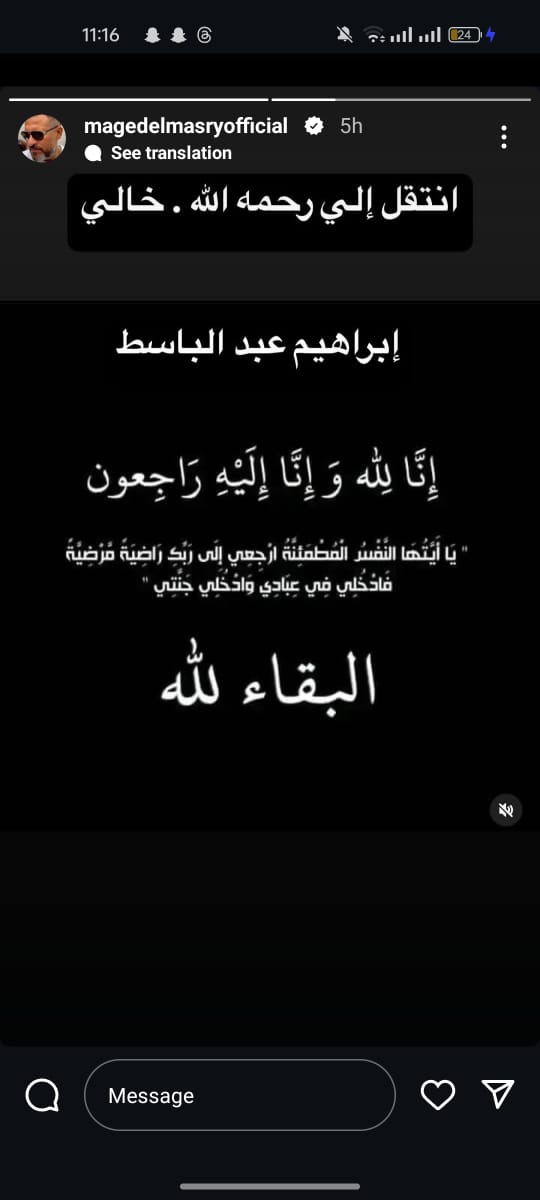 11:16
24
magedelmasryofficial 5h
See translation
انتقل إلي رحمه الله . خالي
إبراهيم عبد الباسط
إِنَّا لِلّٰه وَ إِنَّا إِلَيْهِ رَاجِعون
" يَا أَيَّتُهَا النَّفْسُ الْمُطْمَئِنَّةُ ارْجِعِي إِلَى رَبِّكِ رَاضِيَةً مَّرْضِيَّةً
فَادْخُلِي فِي عِبَادِي وَادْخُلِي جَنَّتِي "
البقاء لله
Message